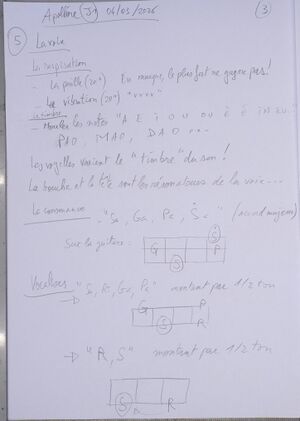 Apolline 04/03/2026 (3)
(5) La voix
La respiration
- La paille (20") En musique, le plus fort ne gagne pas!
- La vibration (20") "vvvv"
Le timbre
- les notes "A E I O U OU
PAO, MAO, DAO ...
Les voyelles varient le "timbre" du son!
La bouche et la tête sont les résonateurs de la voix...
"Sa, Ga, Pa, Ṡa" (accord majeur)
Sur la guitare:
S
G P
S
Vocalises "Sa, R, Ga, Pa" montant par 1/2 ton
G P
S R
→ "R, S" montant par 1/2 ton
S R